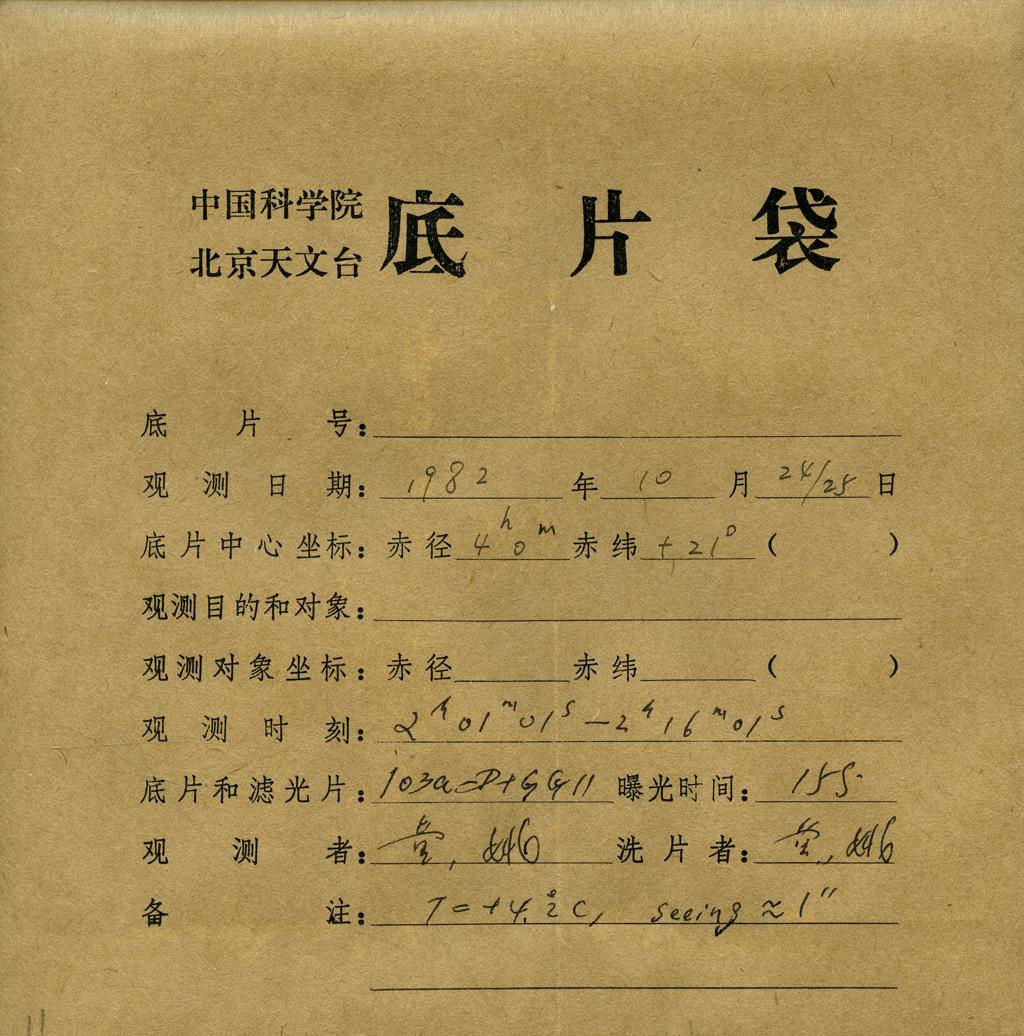 中国科学院
北京天文台
底片袋
底片号：
观测日期： 1982 年 10 月 24/25 日
底片中心坐标： 赤径 4h 0m 赤纬 +21° （ ）
观测目的和对象：
观测对象坐标： 赤径 赤纬 （ ）
观测时刻： 2h01m01s—2h16m01s
底片和滤光片： 103a-D+GG11 曝光时间：
观测者： 洗片者：
备注： T=+4.°2C, seeing≈1″